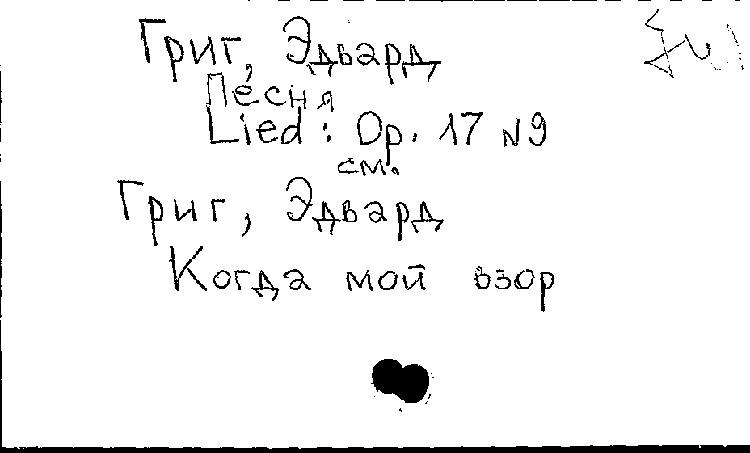 Григ, Эдвард
Песня
Lied: Op. 17 N9
см.
Григ, Эдвард
Когда мой взор